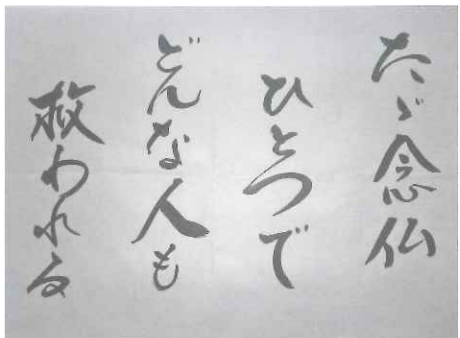 たゞ念仏
ひとつで
どんな人も
救われる